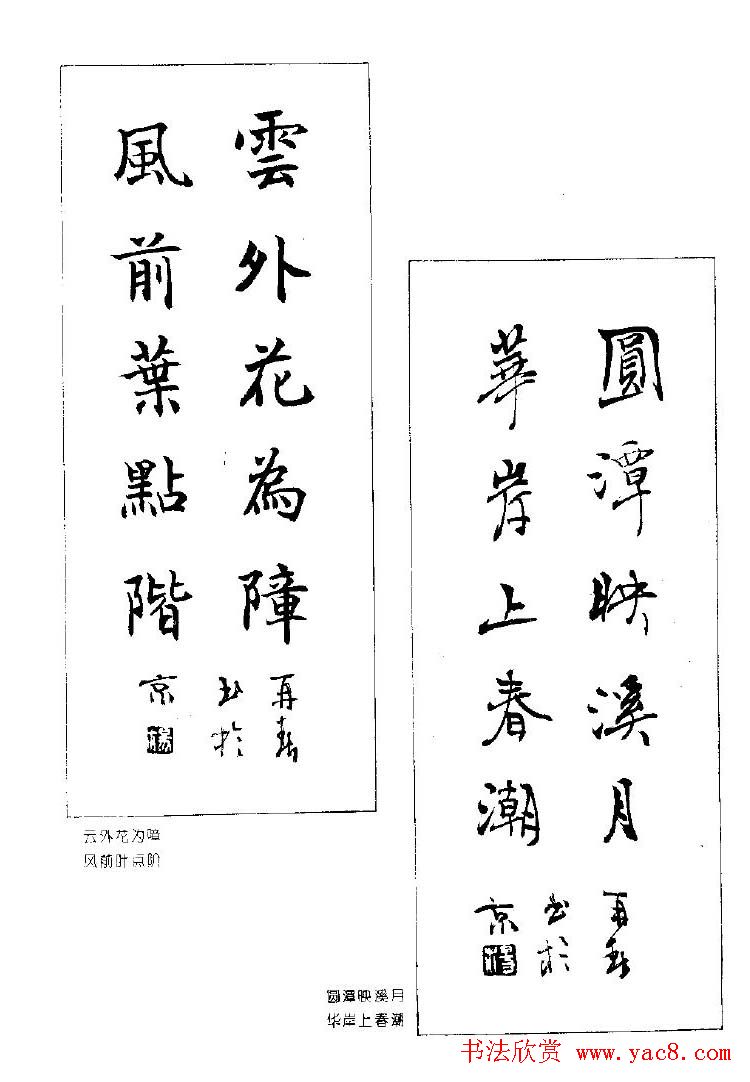 雲外花為障
風前葉點階
再春
書於
京
云外花为障
风前叶点阶
圓潭映溪月
華岸上春潮
再春
書於
京
圆潭映溪月
华岸上春潮
书法欣赏 www.yac8.com